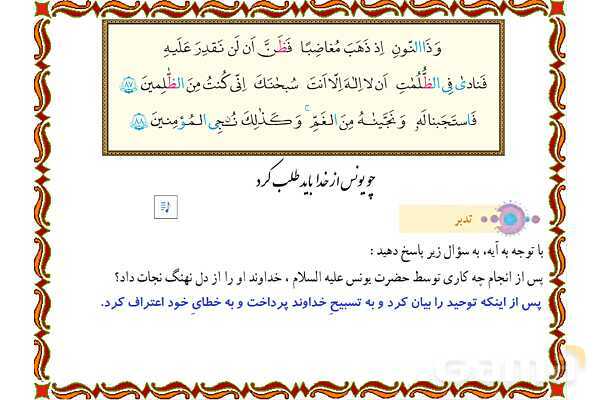 وَ ذَا النّونِ اِذ ذَهَبَ مُغاضِبًا فَظَنَّ اَن لَن نَقدِرَ عَلَیهِ
فَنادىٰ فِی الظُّلُمٰتِ اَن لا اِلٰهَ اِلّا اَنتَ سُبحٰنَکَ اِنّی کُنتُ مِنَ الظّٰلِمینَ ﴿٨٧﴾
فَاستَجَبنا لَهٗ وَ نَجَّینٰهُ مِنَ الغَمِّ ۚ وَ کَذٰلِکَ نُـنْجِی المُؤمِنینَ ﴿٨٨﴾
چو یونس از خدا باید طلب کرد
تدبر
با توجه به آیه، به سؤال زیر پاسخ دهید :
پس از انجام چه کاری توسط حضرت یونس علیه السلام ، خداوند او را از دل نهنگ نجات داد؟
پس از اینکه توحید را بیان کرد و به تسبیحِ خداوند پرداخت و به خطایِ خود اعتراف کرد.